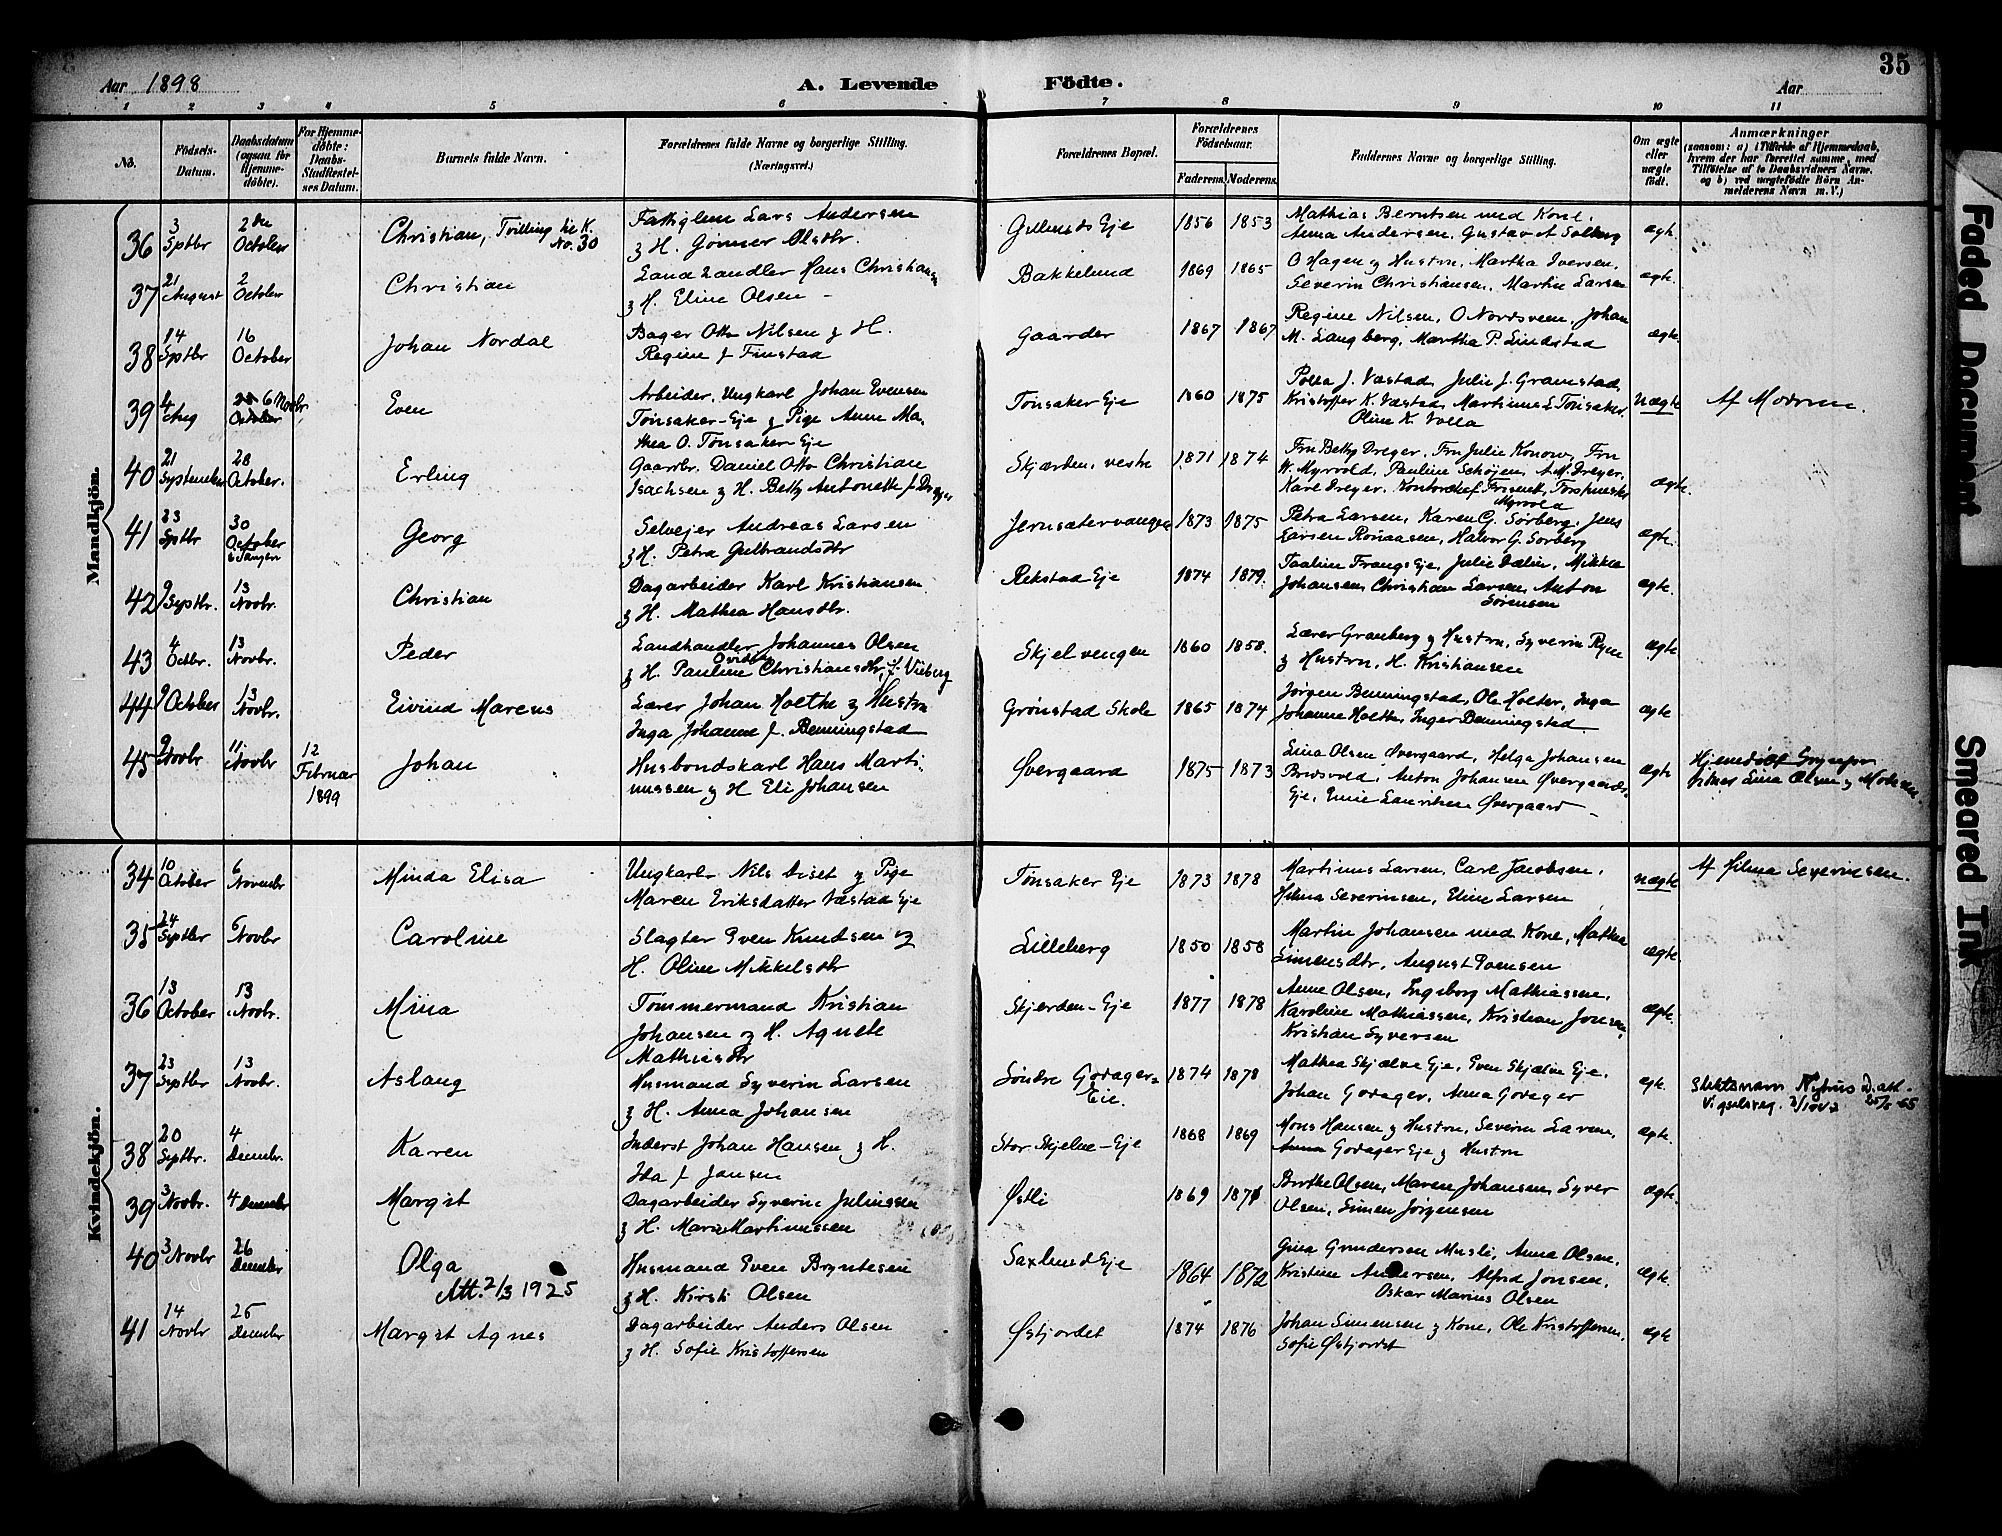 Aar 1898
A. Levende Födte.
Aar
35
1 2 3 4 5 6 7 8 9 10 11
No.
Födsels-Datum.
Daabsdatum (ogsaa for Hjemme-döbte).
For Hjemme-döbte: Daabs-Stadfæstel-ses Datum.
Barnets fulde Navn.
Forældrenes fulde Navne og borgerlige Stilling. (Næringsvei.)
Forældrenes Bopæl.
Forældrenes Födselsaar.
Faderens. Moderens.
Faddernes Navne og borgerlige Stilling.
Om ægte eller uægte födt.
Anmærkninger (saasom: a) i Tilfælde af Hjemmedaab, hvem der har forrettet samme, med Tilföielse af to Daabsvidners Navne, og b) ved uægtefödte Börn An-melderens Navn m. V.)
Mandkjön.
36 3 Sptbr 2den October Christian, Tvilling til K. No. 30 Lars Andersen & H. Gunner Olsdtr. Eje 1856 1853 Mathias Berntsen med Kone, Anna Andersen, Gustav A Solberg ægte.
37 21 August 2 October Christian Landhandler Hans Christiansen & H. Eline Olsen Bakkelund 1869 1865 O Hagen & Hustru, Martha Iversen, Severin Christiansen, Martin Larsen ægte.
38 14 Sptbr 16 October Johan Nordal Bager Otto Nilsen & H. Regine f. Finstad Gaarder 1867 1867 Regine Nilsen, O Nordsveen, Johan M. Langberg, Martha P. Lindstad ægte.
39 4 Aug 6 Novbr October Even Arbeider, Ungkarl Johan Evensen Tønsaker-Eje & Pige Anne Mathea O. Tønsaker-Eje Tønsaker Eje 1860 1875 J. Væstad, Julie J. Kristoffer K. Væstad, Martinus L Tønsaker, Oline K. Volla uægte Af Moderen.
40 21 September 28 October. Erling Gaardbr. Daniel Otto Christian Isachsen & H. Betty Antonette f. Dreyer Skjærden, vestre 1871 1874 Fru Betty Dreyer, Fru Julie Konow, Fru W. Myrvold, Pauline Schøjen, A. M. Dreyer, Karl Dreyer, Myrvold ægte.
41 23 Sptbr 30 October Georg Selvejer Andreas Larsen & H. Petra Gulbrandsdtr Jernsætervangen 1873 1875 Petra Larsen, Karen G. Sørberg, Jens Larsen Rønaasen, Halvor G. Sørberg ægte.
42 9 Septbr. 13 Novbr. Christian Dagarbeider Karl Kristiansen & H. Mathea Hansdtr. Rekstad Eje 1874 1879. Eje, Julie Dælin, Mikkel Johansen, Christian Larsen, Anton Sørensen ægte.
43 4 Octbr. 13 Novbr. Peder Landhandler Johannes Olsen & H. Pauline Ovidia Christiansdtr, f. Viberg Skjelvengen 1860 1858. Lærer Granberg & Hustru, Syverin Ryen & Hustru, H. Kristiansen ægte
44 9 October 13 Novbr. Eivind Marcus Lærer Johan Holthe & Hustru Inga Johanne f. Benningstad Grønstad Skole 1865 1874 Jørgen Benningstad, Ole Holter, Inga Johanne Holter, Inger Benningstad ægte
45 9 Novbr 11 Novbr 12 Februar 1899 Johan Husbondskarl Hans Martinussen & H Eli Johansen Øvergaard 1875 1873 Lina Olsen Øvergaard, Helga Johansen Bredsvold, Anton Johansen Øvergaards-Eje, Emie Lauritsen Øvergaard ægte Lina Olsen & Moderen.
Kvindekjön.
34 10 October 6 Novembr Minda Elisa Ungkarl Nils Diset & Pige Maren Eriksdatter Væstad Eje Tønsaker Eje 1873 1878 Martinus Larsen, Carl Jacobsen, Hilma Severinsen, Eline Larsen uægte Af Hilma Severinsen.
35 24 Septbr 6 Novbr Caroline Slagter Even Knudsen og H. Oline Mikkelsdtr Lilleberg 1850 1858 Martin Johansen med Kone, Mathea Simensdtr, August Evensen ægte.
36 13 October 13 Novbr. Mina Tømmermand Kristian Johansen og H. Agnete Mathiasdtr Skjerden-Eje 1877 1878 Anne Olsen, Ingeborg Mathiassen, Karoline Mathiassen, Kristian Jonsen, Kristian Syversen ægte.
37 23 Septbr 13 Novbr. Aslaug Husmand Syverin Larsen & H. Anna Johansen Søndre Godager-Eie. 1874 1878 Mathea Skjælve Eje, Even Skjælve Eje, Johan Godager, Anna Godager ægte. Slektsnavn Nyhus D. att. Vigselsreg. 25/5-65
38 20 Septbr. 4 Decembr. Karen Inderst Johan Hansen & H. Ida f Jansen Stor Skjelve-Eje 1868 1869 Mons Hansen & Hustru, Severin Larsen, Godager Eje & Hustru ægte.
39 3 Novbr. 4 Decembr Margit Dagarbeider Syverin Juliussen & H. Marie Martinussen Østli 1869 1871 Berthe Olsen, Maren Johansen, Syver Olsen, Simen Jørgensen ægte.
40 3 Novbr 26 Decembr Olga Att. 2/3 1925 Husmand Even Bryntesen & H. Kirsti Olsen Saxlund Eje 1864 1872 Gina Gundersen Musli, Anna Olsen, Kristine Andersen, Alfred Jonsen, Oskar Marius Olsen ægte.
41 14 Novbr 26 Decembr Margit Agnes Dagarbeider Anders Olsen & H. Sofie Kristoffersen Østjordet 1874 1876 Johan Simensen & Kone, Ole Kristoffersen, Sofie Østjordet ægte
Faded Document
Smeared Ink